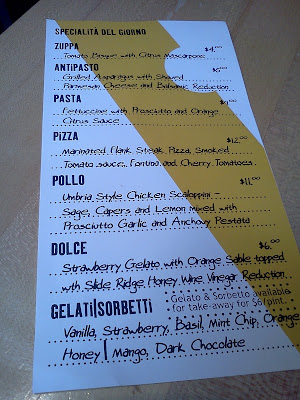 SPECIALITÀ DEL GIORNO
ZUPPA $4.00
Tomato Bisque with Citrus Mascarpone
ANTIPASTO $6.00
Grilled Asparagus with Shaved
Parmesan Cheese and Balsamic Reduction
PASTA $9.00
Fettuccine with Prosciutto and Orange
Citrus Sauce
PiZZA $12.00
Marinated Flank Steak Pizza, Smoked
Tomato sauce, Fontina and Cherry Tomatoes
POLLO $11.00
Umbria Style Chicken Scaloppini -
Sage, Capers and Lemon mixed with
Prosciutto Garlic and Anchovy Pestata
DOLCE $6.00
Strawberry Gelato with Orange Sable topped
with Slide Ridge Honey Wine Vinegar Reduction
GELATI|SORBETTi Gelato & Sorbetto available
for take-away for $6/pint.
Vanilla, Strawberry, Basil, Mint Chip, Orange
Honey | Mango, Dark Chocolate